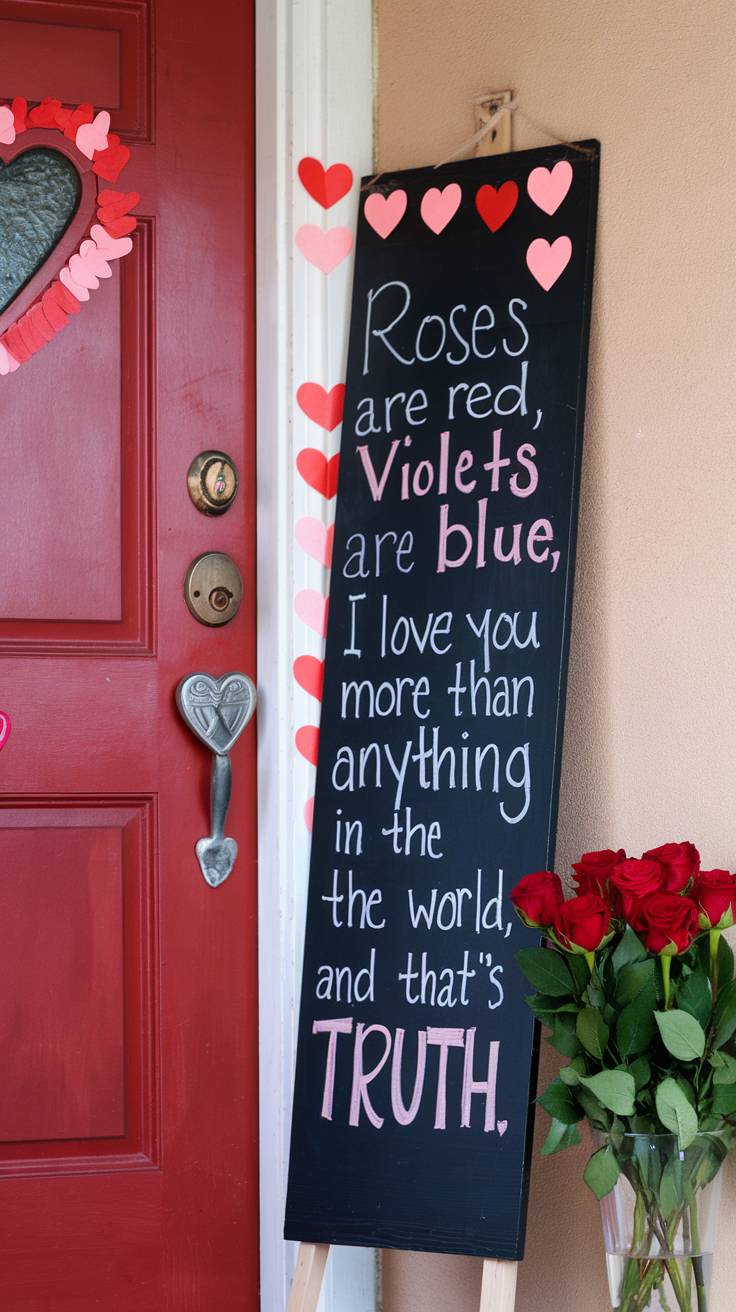 Roses
are red,
Violets
are blue,
I love you
more than
anything
in the
the world,
and that"s
TRUTH.